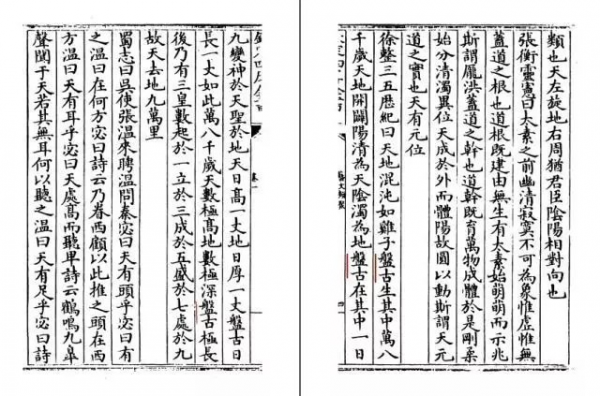 類也天左旋地右周猶君臣陰陽相對向也
張衡靈憲曰太素之前幽清寂寞不可為象惟虛惟無
蓋道之根也道根既建由無生有太素始萌萌而示兆
斯謂龐洪蓋道之幹也道幹既育萬物成體於是剛柔
始分清濁異位天成於外而體陽故圓以動斯謂天元
道之實也天有元位
徐整三五歷紀曰天地混沌如雞子盤古生其中萬八
千歲天地開闢陽清為天陰濁為地盤古在其中一日
九變神於天聖於地天日高一丈地日厚一丈盤古日
長一丈如此萬八千歲天數極高地數極深盤古極長
後乃有三皇數起於一立於三成於五盛於七處於九
故天去地九萬里
蜀志曰吳使張溫來聘溫問秦宓曰天有頭乎宓曰有
之溫曰在何方宓曰詩云乃眷西顧以此推之頭在西
方溫曰天有耳乎宓曰天處高而聽卑詩云鶴鳴九皋
聲聞于天若其無耳何以聽之溫曰天有足乎宓曰詩